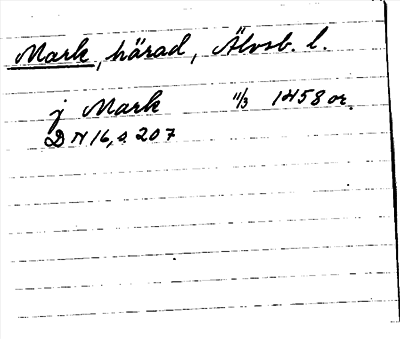 Mark, härad, Älvsb. l.
j Mark 11/3 1458 or.
DN 16, s 207